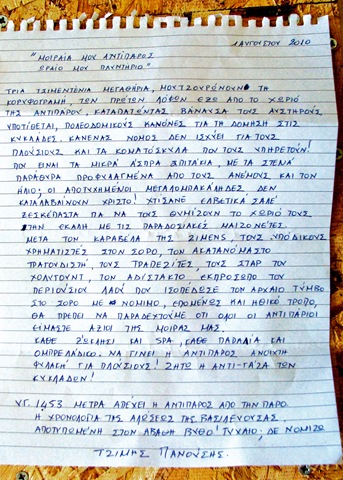 1 ΑΥΓΟΥΣΤΟΥ 2010
"ΜΟΙΡΑΙΑ ΜΟΥ ΑΝΤΙΠΑΡΟΣ
ΩΡΑΙΟ ΜΟΥ ΠΛΥΝΤΗΡΙΟ"
ΤΡΙΑ ΤΣΙΜΕΝΤΕΝΙΑ ΜΕΓΑΘΗΡΙΑ, ΜΟΥΤΖΟΥΡΩΝΟΥΝ ΤΗ
ΚΟΡΥΦΟΓΡΑΜΗ, ΤΩΝ ΠΡΩΤΩΝ ΛΟΦΩΝ ΕΞΩ ΑΠΟ ΤΟ ΧΩΡΙΟ
ΤΗΣ ΑΝΤΙΠΑΡΟΥ, ΚΑΤΑΠΑΤΩΝΤΑΣ ΒΑΝΑΥΣΑ ΤΟΥΣ ΑΥΣΤΗΡΟΥΣ
ΥΠΟΤΙΘΕΤΑΙ, ΠΟΛΕΟΔΟΜΙΚΟΥΣ ΚΑΝΟΝΕΣ ΓΙΑ ΤΗ ΔΟΜΗΣΗ ΣΤΙΣ
ΚΥΚΛΑΔΕΣ. ΚΑΝΕΝΑΣ ΝΟΜΟΣ ΔΕΝ ΙΣΧΥΕΙ ΓΙΑ ΤΟΥΣ
ΠΛΟΥΣΙΟΥΣ ΚΑΙ ΤΑ ΚΟΜΑΤΟΣΚΥΛΑ ΠΟΥ ΤΟΥΣ ΥΠΗΡΕΤΟΥΝ!
ΠΟΥ ΕΙΝΑΙ ΤΑ ΜΙΚΡΑ ΑΣΠΡΑ ΣΠΙΤΑΚΙΑ, ΜΕ ΤΑ ΣΤΕΝΑ
ΠΑΡΑΘΥΡΑ ΠΡΟΦΥΛΑΓΜΕΝΑ ΑΠΟ ΤΟΥΣ ΑΝΕΜΟΥΣ ΚΑΙ ΤΟΝ
ΗΛΙΟ; ΟΙ ΑΠΟΤΥΧΗΜΕΝΟΙ ΜΕΓΑΛΟΜΠΑΚΑΛΗΔΕΣ ΔΕΝ
ΚΑΤΑΛΑΒΑΙΝΟΥΝ ΧΡΙΣΤΟ! ΧΤΙΣΑΝΕ ΕΛΒΕΤΙΚΑ ΣΑΛΕ
ΞΕΣΚΕΠΑΣΤΑ ΓΙΑ ΝΑ ΤΟΥΣ ΘΥΜΙΖΟΥΝ ΤΟ ΧΩΡΙΟ ΤΟΥΣ
ΤΗΝ ΕΚΑΛΗ ΜΕ ΤΙΣ ΠΑΡΑΔΟΣΙΑΚΕΣ ΜΑΙΖΟΝΕΤΕΣ.
ΜΕΤΑ ΤΟΝ ΚΑΡΑΒΕΛΑ ΤΗΣ ΖΙΜΕΝΣ, ΤΟΥΣ ΥΠΟΔΙΚΟΥΣ
ΧΡΗΜΑΤΙΣΤΕΣ ΣΤΟΝ ΣΟΡΟ, ΤΟΝ ΑΚΑΤΑΝΟΜΑΣΤΟ
ΤΡΑΓΟΥΔΙΣΤΗ, ΤΟΥΣ ΤΡΑΠΕΖΙΤΕΣ, ΤΟΥΣ ΣΤΑΡ ΤΟΥ
ΧΟΛΥΓΟΥΝΤ, ΤΟΝ ΑΔΙΣΤΑΚΤΟ, ΕΚΠΡΟΣΩΠΟ ΤΟΥ
ΠΕΡΙΟΥΣΙΟΥ ΛΑΟΥ ΠΟΥ ΙΣΟΠΕΔΩΣΕ ΤΟΝ ΑΡΧΑΙΟ ΤΥΜΒΟ
ΣΤΟ ΣΟΡΟ ΜΕ ΝΟΜΙΜΟ, ΕΠΟΜΕΝΩΣ ΚΑΙ ΗΘΙΚΟ ΤΡΟΠΟ,
ΘΑ ΠΡΕΠΕΙ ΝΑ ΠΑΡΑΔΕΧΤΟΥΜΕ ΟΤΙ ΟΛΟΙ ΟΙ ΑΝΤΙΠΑΡΙΟΙ
ΕΙΜΑΣΤΕ ΑΞΙΟΙ ΤΗΣ ΜΟΙΡΑΣ ΜΑΣ.
ΚΑΘΕ ΞΩΚΛΗΣΙ ΚΑΙ SPA, ΚΑΘΕ ΠΑΡΑΛΙΑ ΚΑΙ
ΟΜΠΡΕΛΑΔΙΚΟ. ΝΑ ΓΙΝΕΙ Η ΑΝΤΙΠΑΡΟΣ ΑΝΟΙΧΤΗ
ΦΥΛΑΚΗ ΓΙΑ ΠΛΟΥΣΙΟΥΣ! ΖΗΤΩ Η ΑΝΤΙ-ΓΑΖΑ ΤΩΝ
ΚΥΚΛΑΔΩΝ!
ΥΓ. 1453 ΜΕΤΡΑ ΑΠΕΧΕΙ Η ΑΝΤΙΠΑΡΟΣ ΑΠΟ ΤΗΝ ΠΑΡΟ.
Η ΧΡΟΝΟΛΟΓΙΑ ΤΗΣ ΑΛΩΣΕΩΣ ΤΗΣ ΒΑΣΙΛΕΥΟΥΣΑΣ
ΑΠΟΤΥΠΩΜΕΝΗ ΣΤΟΝ ΑΒΑΘΗ ΒΥΘΟ! ΤΥΧΑΙΟ; ΔΕ ΝΟΜΙΖΩ
ΤΖΙΜΗΣ ΠΑΝΟΥΣΗΣ.